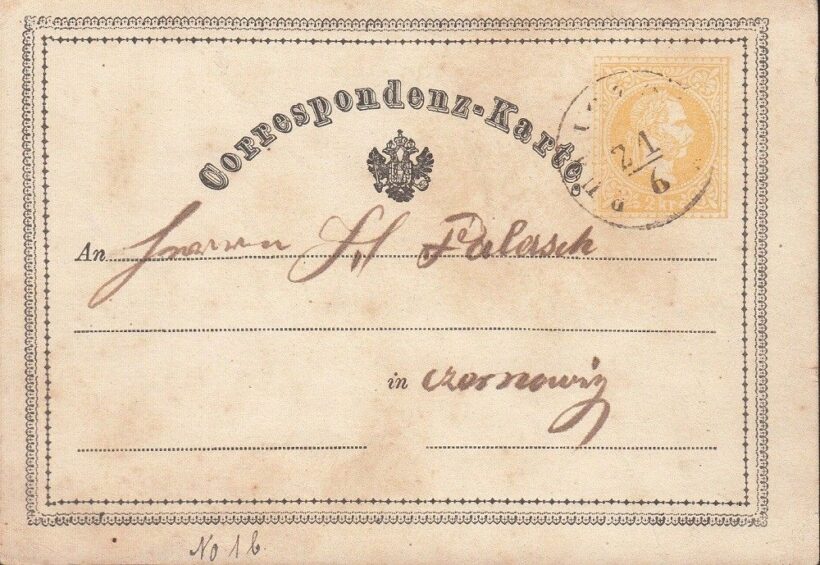 Correspondenz-Karte.
2 kr
21/6
An Herrn H Palasek
in Czernowitz
No 1b